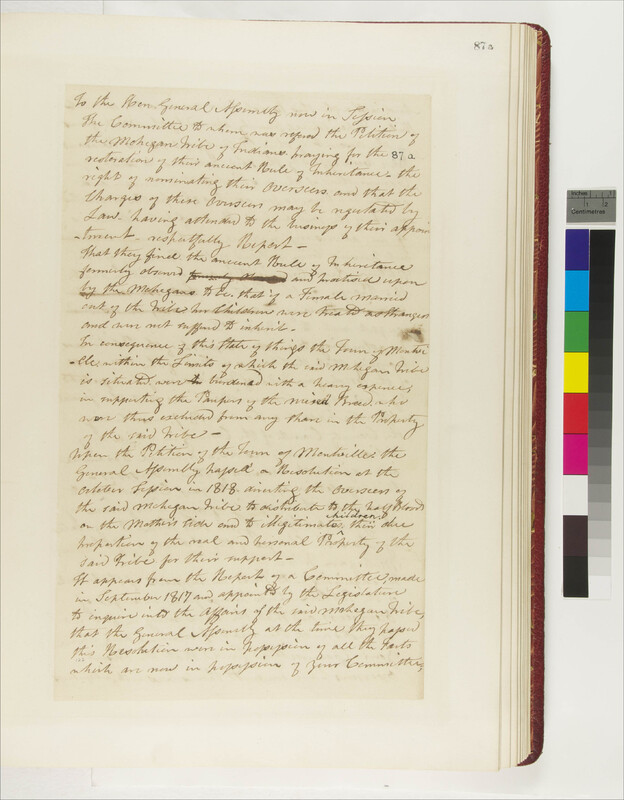 87a
To the Hon. General Assembly now in Session
The Committee to whom was refered the Petition of
the Mohegan Tribe of Indians praying for the 87a
restoration of their ancient Rule of Inheritance - the
right of nominating their Overseers and that the
Charges of these Overseers may be regulated by
Law - having attended to the business of their appoin
-tment - respectfully Report -
That they find the ancient Rule of Inheritance
formerly observd and practised upon
by the Mohegans to be, that if a Female married
out of the Tribe her Children were treatd as strangers
and were not sufferd to inherit -
In consequence of this State of things the Town of Montvi
-lle within the Limits of which the said Mohegan Tribe
is situated, were burdened with a heavy expence,
in supporting the Paupers of the mixed Breed who
were thus excluded from any share in the Property
of the said Tribe -
Upon the Petition of the Town of Montville the
General Assembly passed a Resolution at the
October Session in 1818 directing the Overseers of
the said Mohegan Tribe to distribute to the half Bloods
on the Mothers side and to Illigitimate children their due
proportion of the real and personal Property of the
said Tribe for their support -
It appears from the Report of a Committee, made
in September 1817 and appointd by the Legislature
to inquire into the Affairs of the said Mohegan Tribe,
that the General Assembly at the time they passed
this Resolution were in possession of all the facts
which are now in possession of your Committee,
inches
1 2
Centimetres